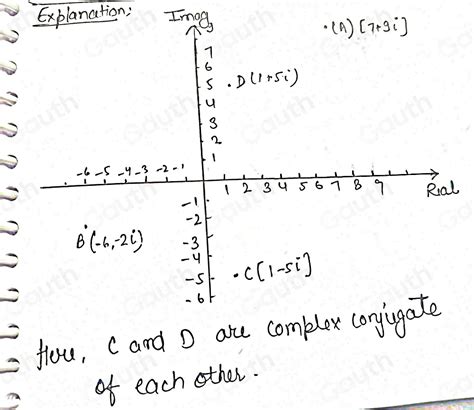 Explanation:
Imag
y
.(A) [7+9i]
7
6
5 .D(1+5i)
4
3
2
1
-6 -5 -4 -3 -2 -1
1 2 3 4 5 6 7 8 9
Real
-1
-2
B(-6,-2i)
-3
-4
-5 .C[1-5i]
-6
Here, C and D are complex conjugate
of each other.
Gauth